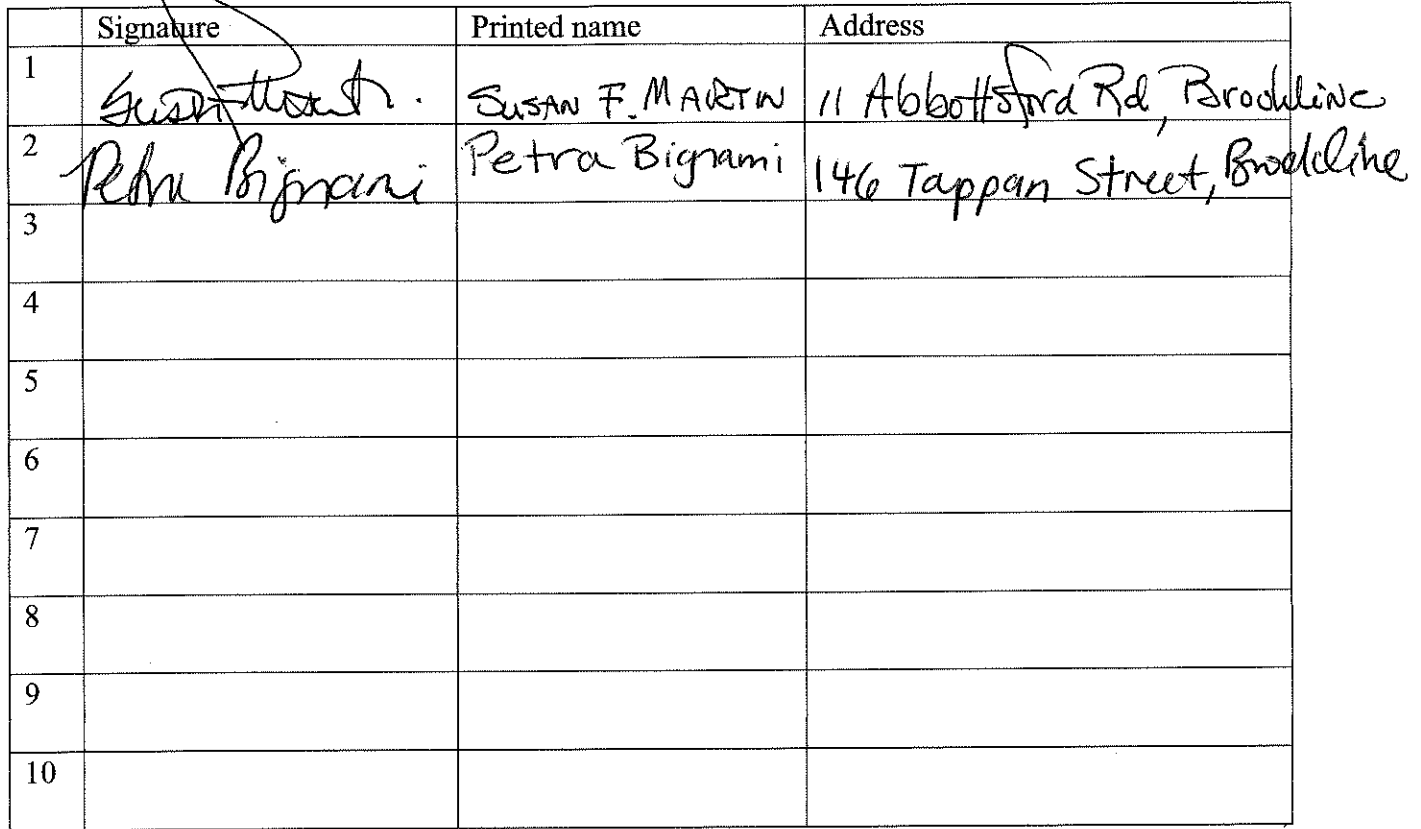 Signature Printed name Address
1 Susan F. Martin SUSAN F. MARTIN 11 Abbottsford Rd, Brookline
2 Petra Bignami Petra Bignami 146 Tappan Street, Brookline
3
4
5
6
7
8
9
10